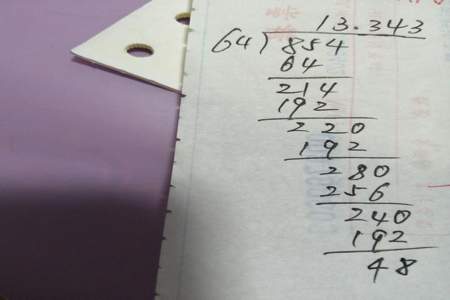 13.343
64)854
64
214
192
220
192
280
256
240
192
48